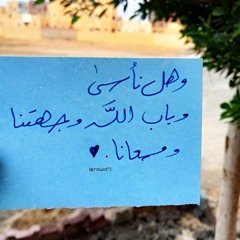 وهل نأسى
وباب اللّه وجهتنا
ومسعانا. ♥